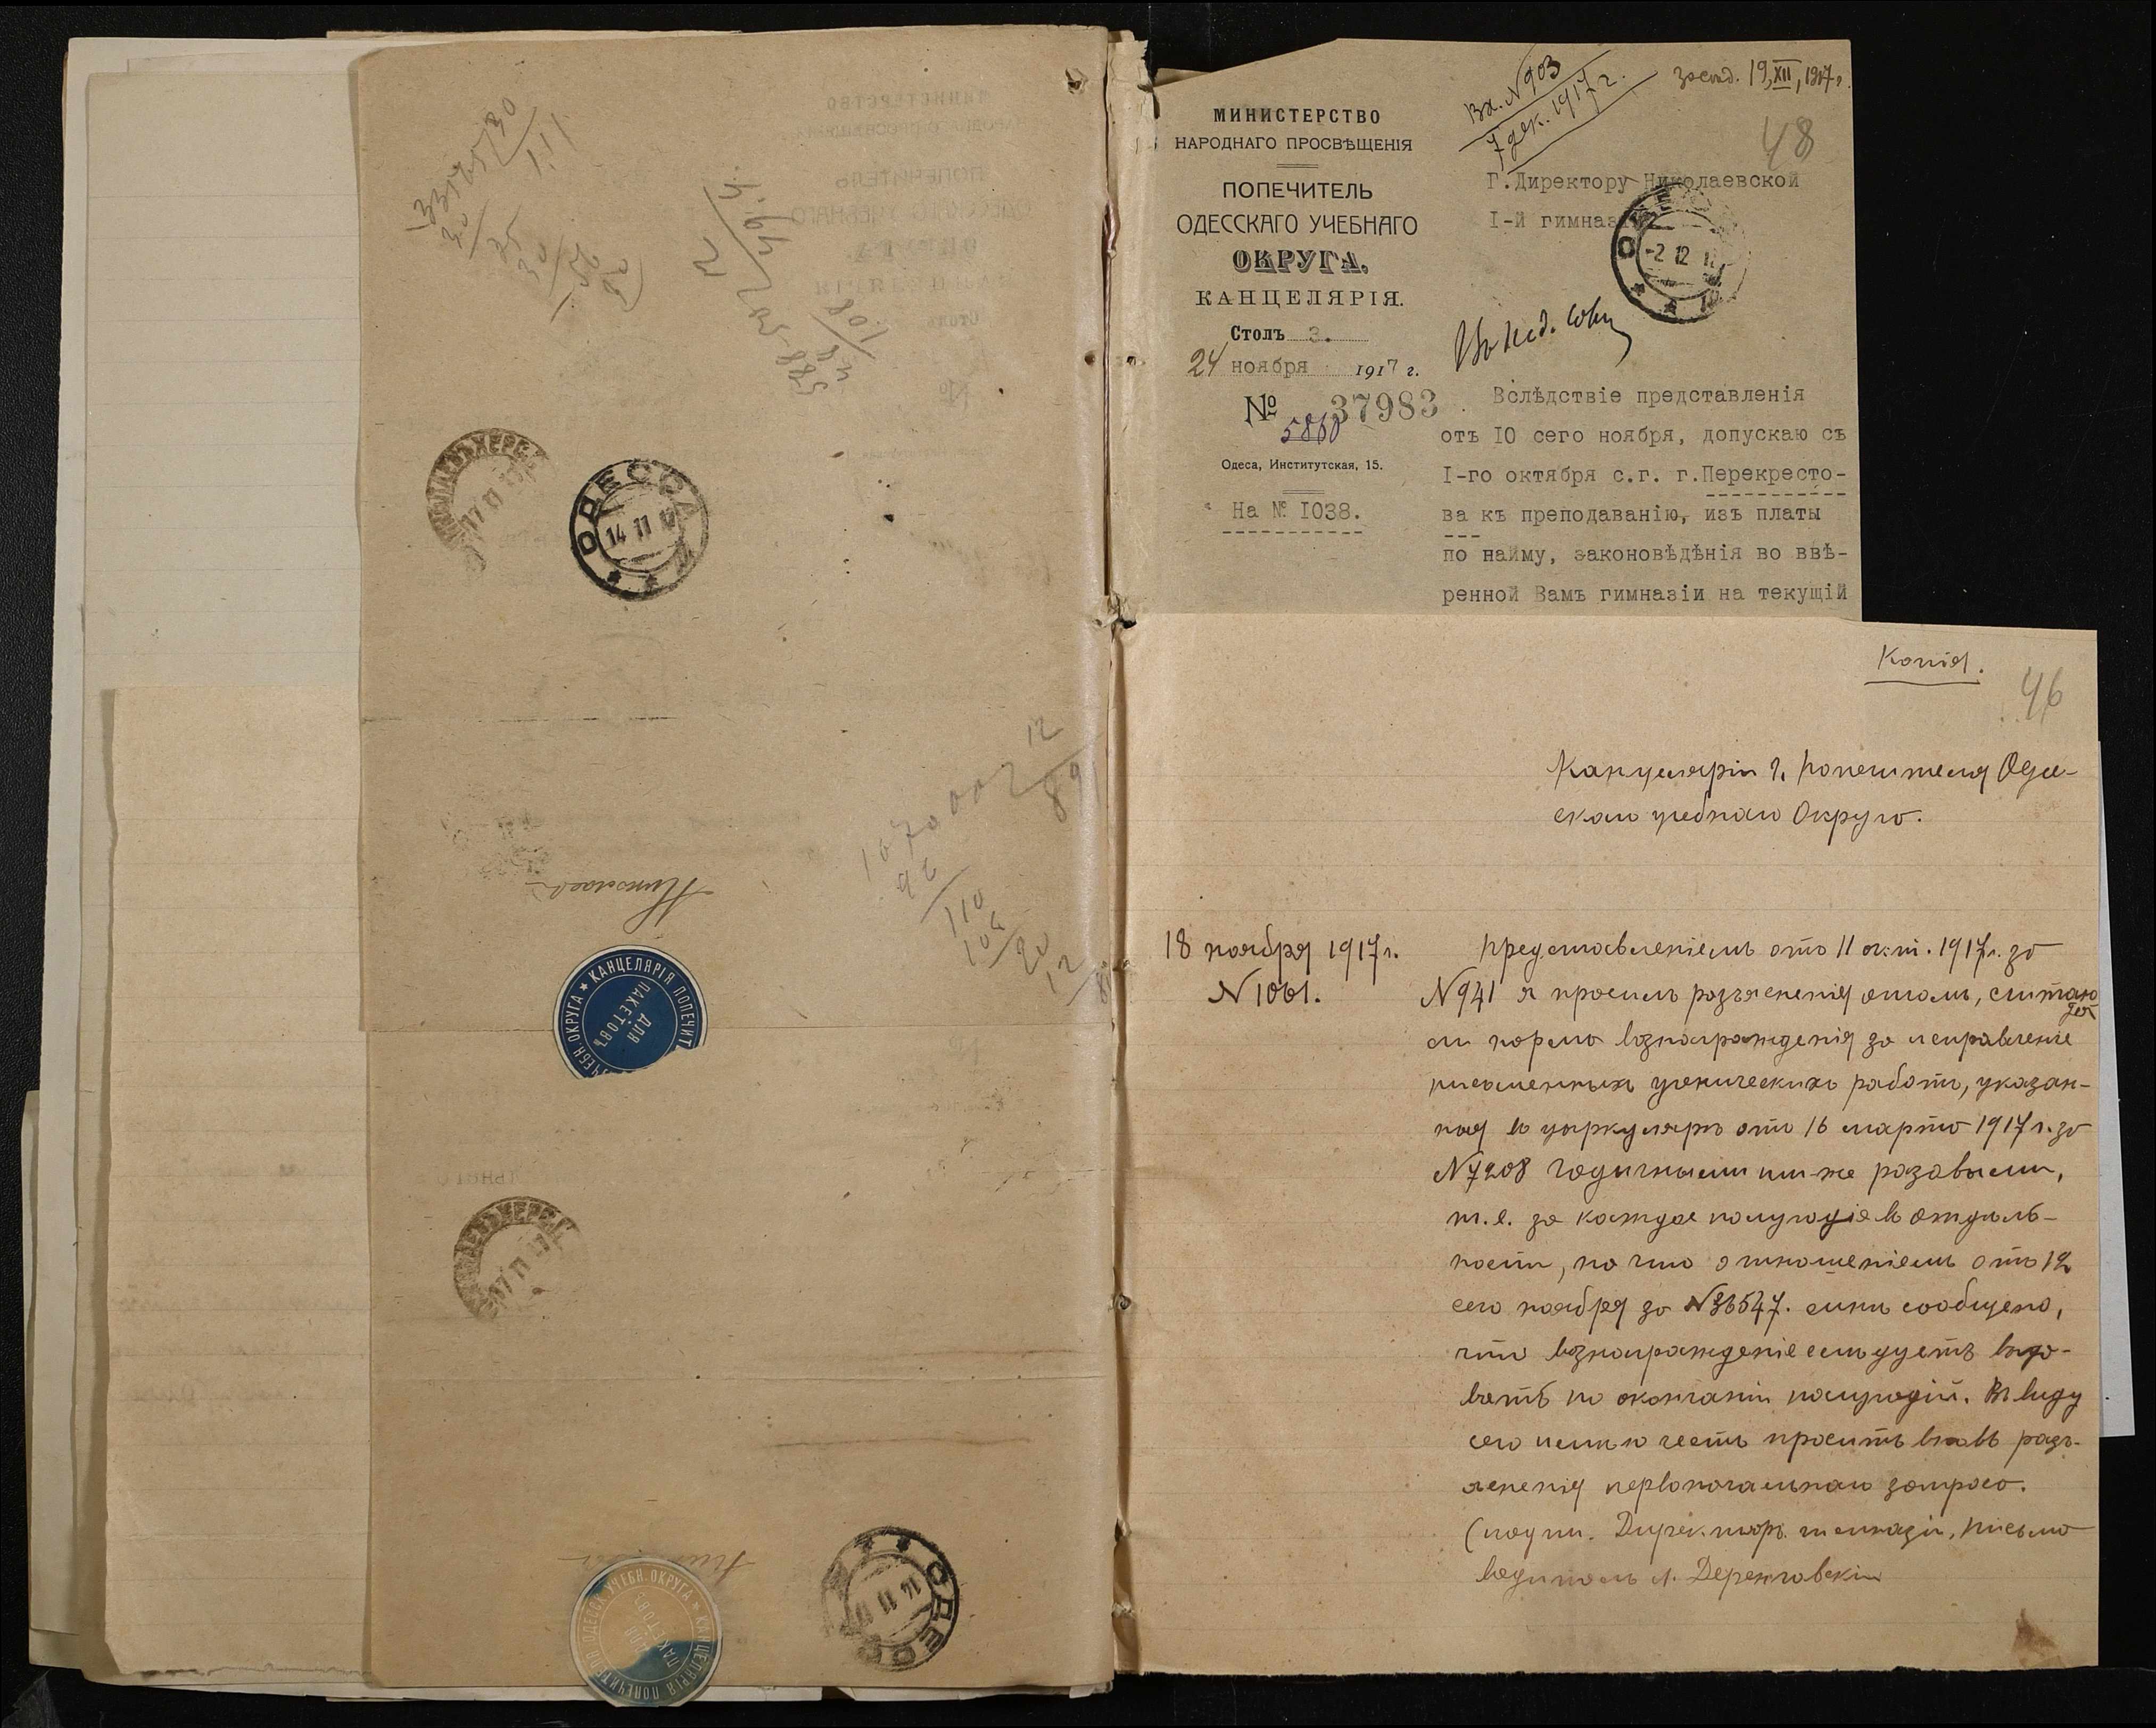 МИНИСТЕРСТВО
НАРОДНАГО ПРОСВѢЩЕНІЯ
ПОПЕЧИТЕЛЬ
ОДЕССКАГО УЧЕБНАГО
ОКРУГА.
КАНЦЕЛЯРІЯ.
Столъ 3.
24 ноября 1917 г.
№ 37983
5860
Одеса, Институтская, 15.
На № I038.
Вх. N 903
7 дек. 1917 г.
засѣд. 19, XII, 1917 г.
48
Г.Директору Николаевской
I-й гимназ
-2 12 17
Въ пед. совѣт
Вслѣдствіе представленія
отъ IO сего ноября, допускаю съ
I-го октября с.г. г.Перекресто-
ва къ преподаванію, изъ платы
по найму, законовѣдѣнія во ввѣ-
ренной Вамъ гимназіи на текущій
Копія.
46
Канцеляріи г. Попечителя Одес-
скаго учебнаго Округа.
18 ноября 1917 г.
N 1061.
Представленіемъ отъ 11 окт. 1917 г. за
N 941 я просилъ разъясненія о томъ, считаю
тся
ли норма вознагражденія за исправленіе
письменныхъ ученическихъ работъ, указан-
ная въ циркулярѣ отъ 16 марта 1917 г. за
N 7208 годичными или же разовыми,
т.е. за каждое полугодіе въ отдѣль-
ности, на что отношеніемъ отъ 12
сего ноября за N 36547. мнѣ сообщено,
что вознагражденіе слѣдуетъ выда-
вать по окончаніи полугодій. Въ виду
сего имѣю честь просить вновь разъ-
ясненія первоначальнаго запроса.
(подп. Директоръ гимназіи, письмо
водитель А. Деренговскій
ОДЕССА
14 11 17
Николаевъ
КАНЦЕЛЯРІЯ ПОПЕЧИТ УЧЕБН. ОКРУГА
ДЛЯ
ПАКЕТОВЪ
КАНЦЕЛЯРІЯ ПОПЕЧИТЕЛЯ ОДЕССК. УЧЕБН. ОКРУГА
ДЛЯ
ПАКЕТОВЪ
ОДЕСС
14 11 17